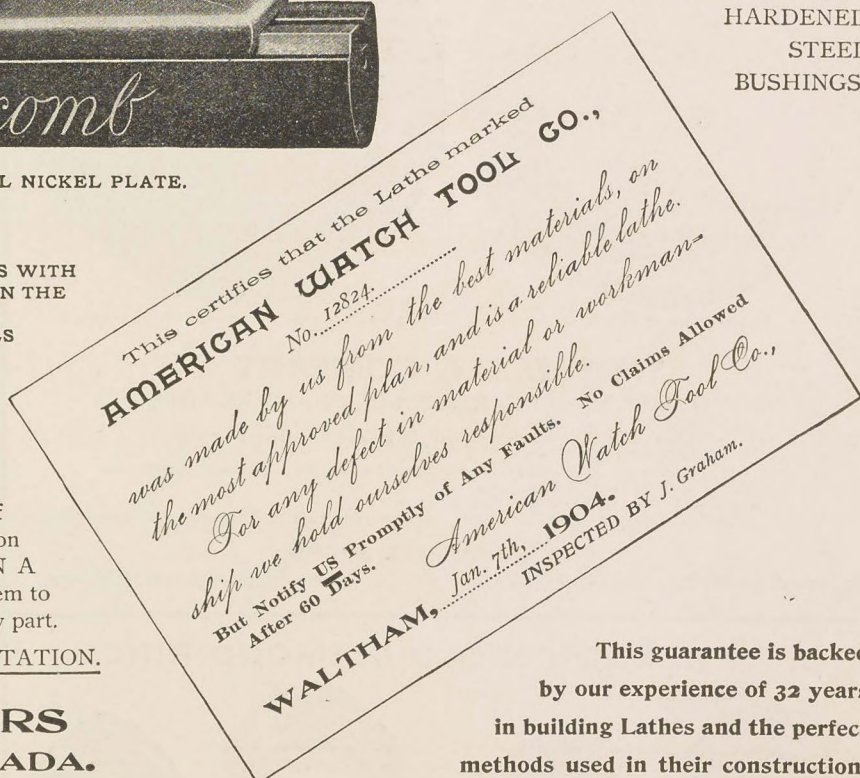 HARDENED
STEEL
BUSHINGS
comb
L NICKEL PLATE.
S WITH
N THE
LS
This certifies that the Lathe marked
AMERICAN WATCH TOOL CO.,
No. 12824.
was made by us from the best materials, on
the most approved plan, and is a reliable lathe.
For any defect in material or workman-
ship we hold ourselves responsible.
But Notify US Promptly of Any Faults. No Claims Allowed
After 60 Days.
American Watch Tool Co.,
WALTHAM, Jan. 7th, 1904.
INSPECTED BY J. Graham.
f
on
N A
em to
y part.
TATION.
RS
ADA.
This guarantee is backed
by our experience of 32 years
in building Lathes and the perfec
methods used in their construction